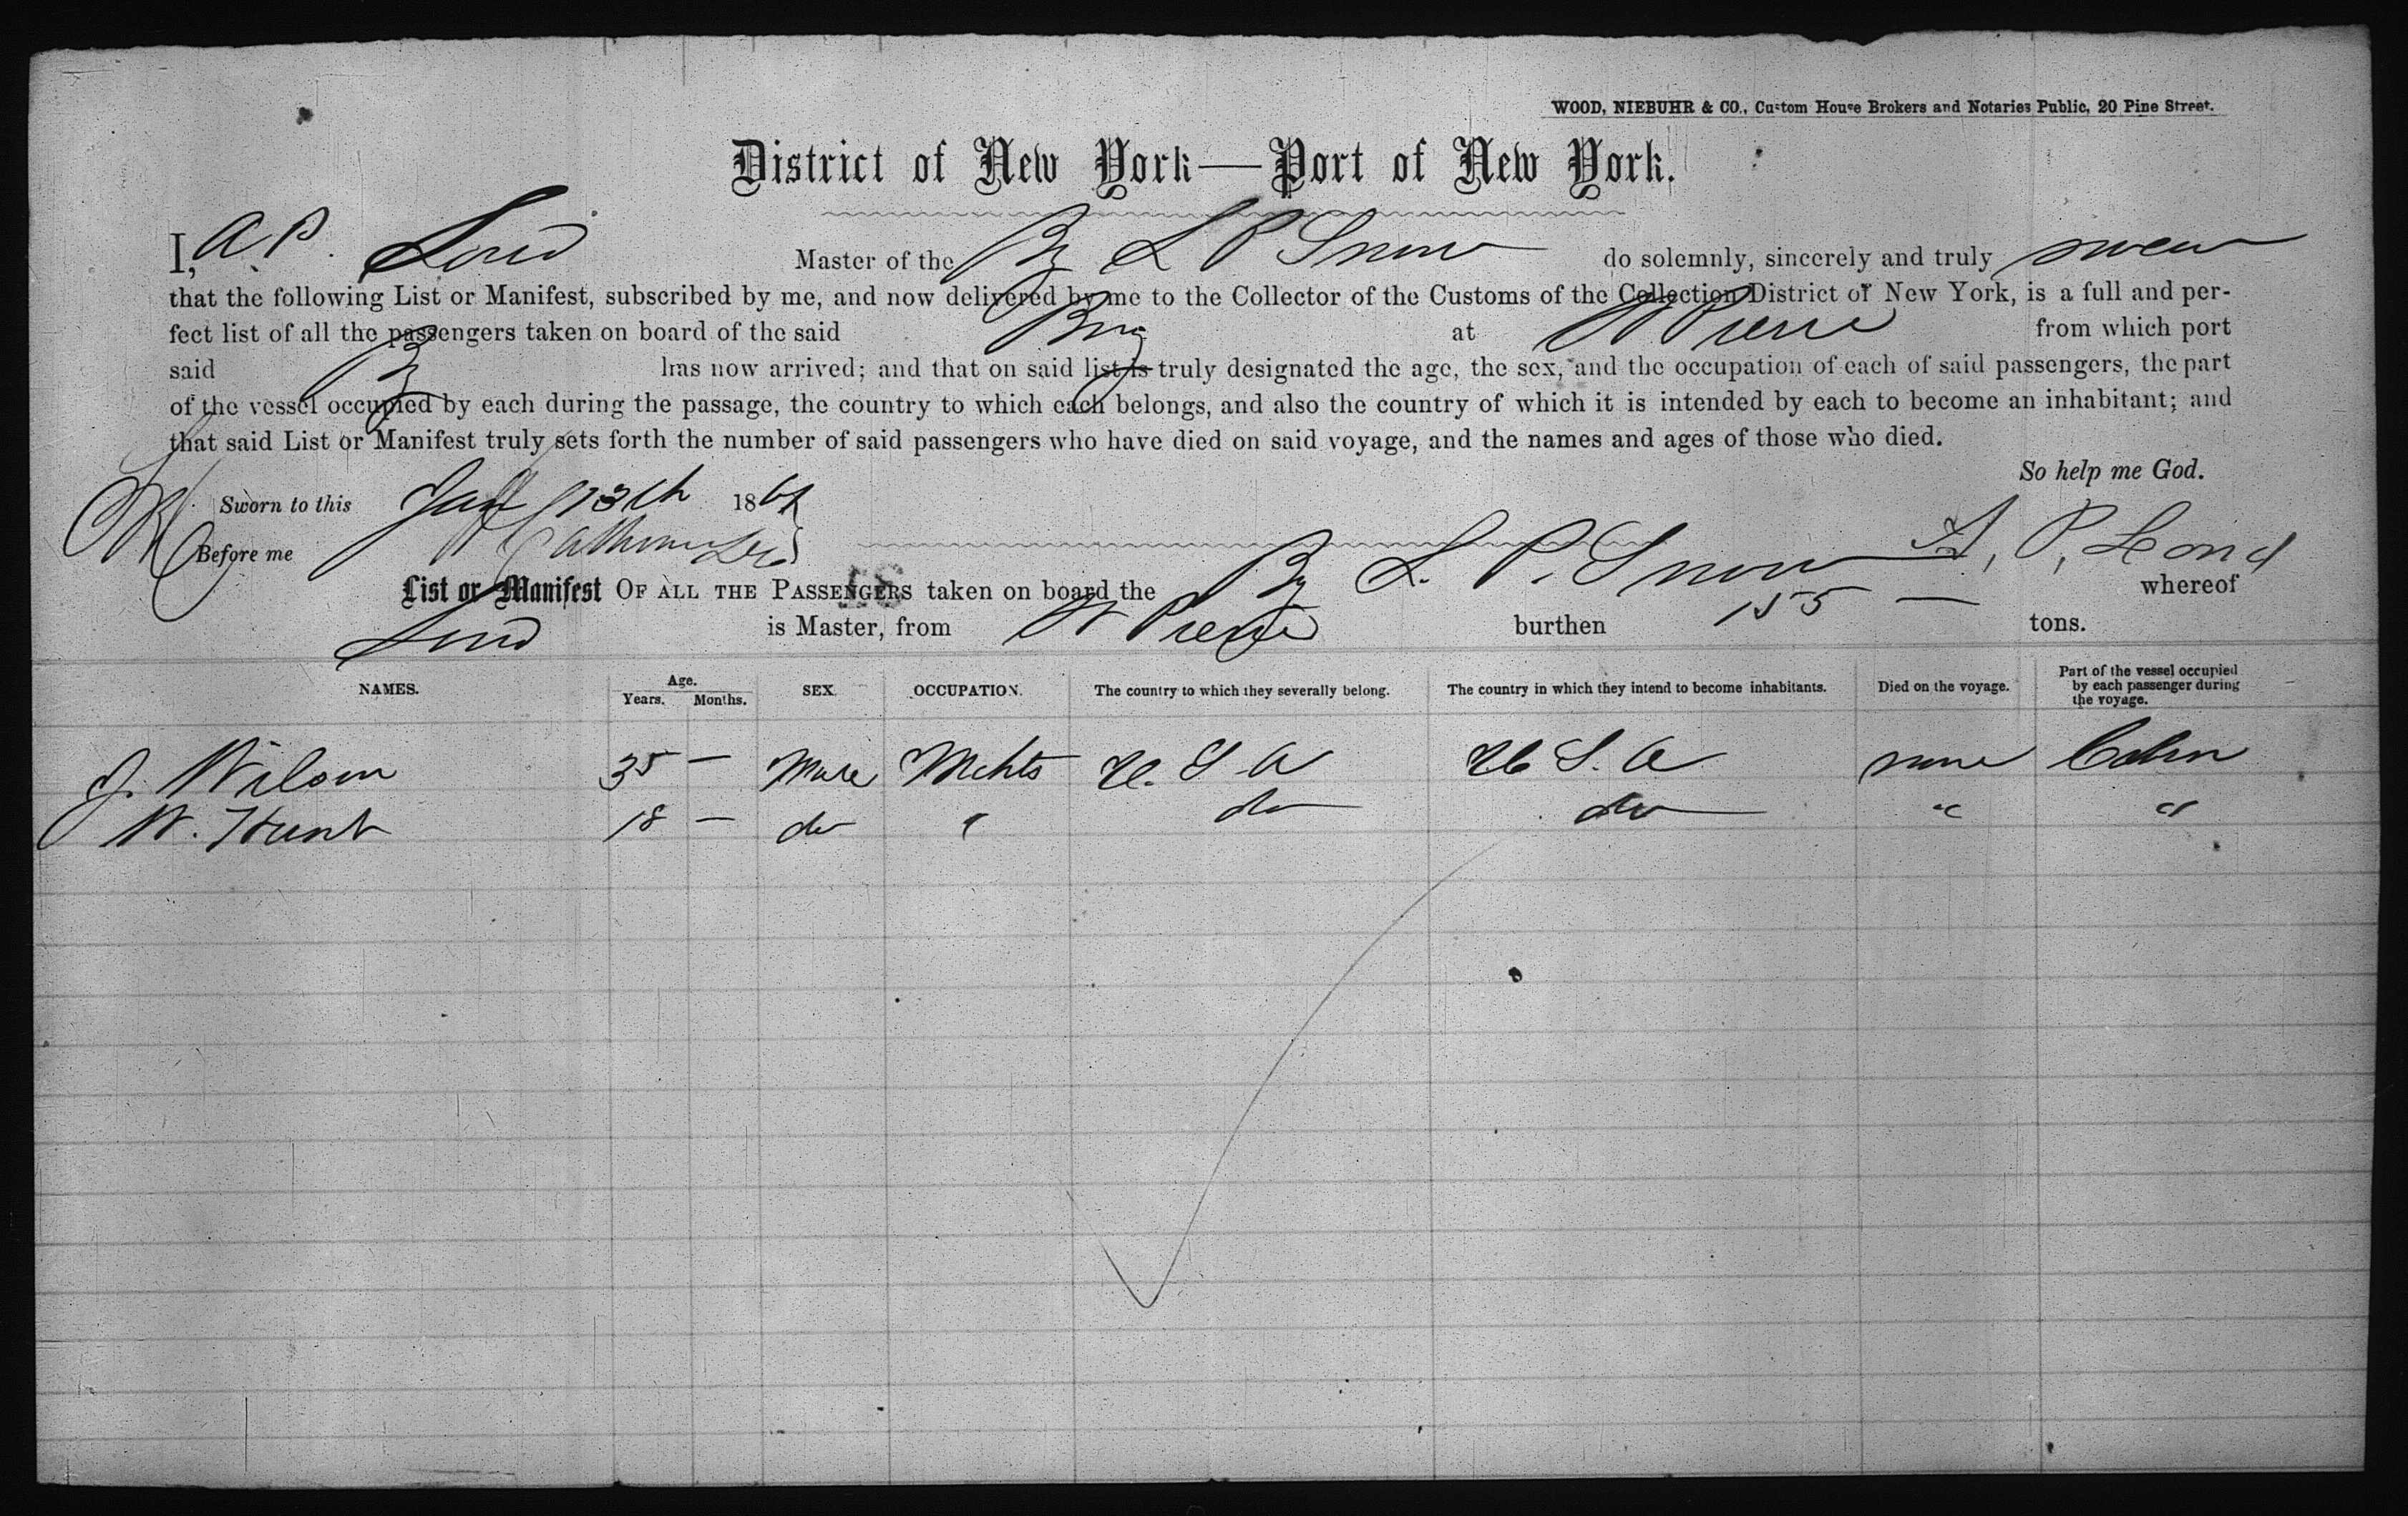 WOOD, NIEBUHR & CO., Custom House Brokers and Notaries Public, 20 Pine Street.
District of New York—Port of New York.
I, A P. Lord Master of the Bg L P Snow do solemnly, sincerely and truly swear
that the following List or Manifest, subscribed by me, and now delivered by me to the Collector of the Customs of the Collection District of New York, is a full and per-
fect list of all the passengers taken on board of the said Brig at St Pierre from which port
said Bg has now arrived; and that on said list is truly designated the age, the sex, and the occupation of each of said passengers, the part
of the vessel occupied by each during the passage, the country to which each belongs, and also the country of which it is intended by each to become an inhabitant; and
that said List or Manifest truly sets forth the number of said passengers who have died on said voyage, and the names and ages of those who died.
So help me God.
Sworn to this Jany 13th 186
Before me
A, P, Lord
List or Manifest OF ALL THE PASSENGERS taken on board the Bg L. P. Snow whereof
Lord is Master, from St Pierre burthen 155 — tons.
NAMES. Age. Years. Months. SEX. OCCUPATION. The country to which they severally belong. The country in which they intend to become inhabitants. Died on the voyage. Part of the vessel occupied by each passenger during the voyage.
J. Wilson 35 — Male Mchts U. S A U S. A none Cabin
W. Hunt 18 — do " do do " "